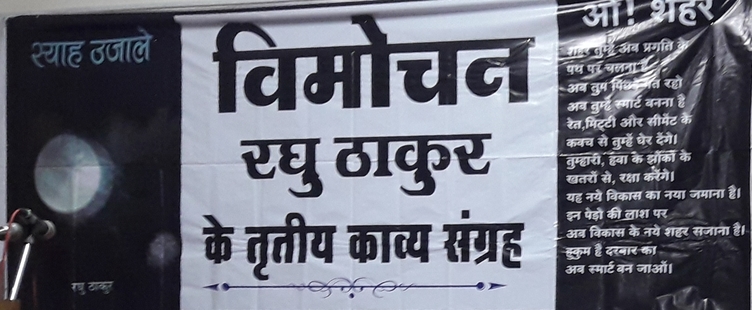 स्याह उजाले
रघु ठाकुर
विमोचन
रघु ठाकुर
के तृतीय काव्य संग्रह
ओ! शहर
शहर तुम्हें अब प्रगति के
पथ पर चलना है
अब तुम पिछड़े मत रहो
अब तुम्हें स्मार्ट बनना है
रेत,मिट्टी और सीमेंट के
कवच से तुम्हें घेर देंगे।
तुम्हारी, हवा के झौंकों के
खतरों से, रक्षा करेंगे।
यह नये विकास का नया जमाना है।
इन पेड़ो की लाश पर
अब विकास के नये शहर सजाना है।
हुकुम है दरबार का
अब स्मार्ट बन जाओं।